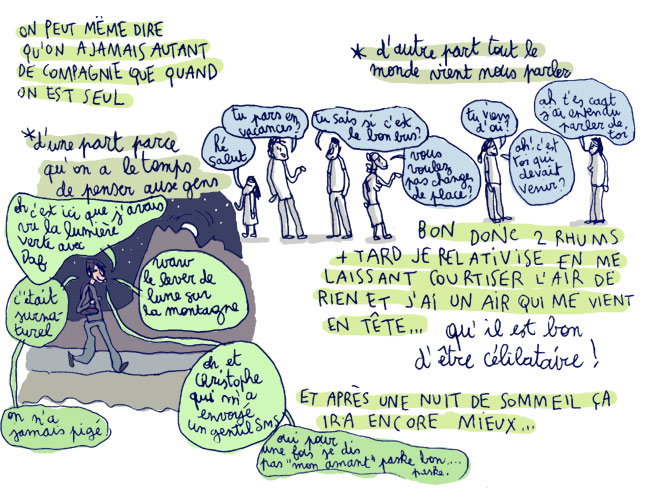 ON PEUT MÊME DIRE
QU'ON A JAMAIS AUTANT
DE COMPAGNIE QUE QUAND
ON EST SEUL
*d'une part parce
qu'on a le temps
de penser aux gens
oh c'est ici que j'avais
vu la lumière
verte avec
Daf
c'était
surna-
turel
on n'a
jamais pigé
waow
le lever de
lune sur
la montagne
oh et
Christophe
qui m'a
envoyé
un gentil SMS
oui pour
une fois je dis
pas "mon amant" paske bon,...
peske.
* d'autre part tout le
monde vient nous parler
hé
salut
tu pars en
vacances?
tu sais si c'est
le bon bus?
vous
voulez
pas changer
de place?
tu viens
d'où?
ah! c'est
toi qui
devait
venir?
ah t'es cagt
j'ai entendu
parler de
toi
BON DONC 2 RHUMS
+ TARD JE RELATIVISE EN ME
LAISSANT COURTISER L'AIR DE
RIEN ET J'AI UN AIR QUI ME VIENT
EN TÊTE... qu'il est bon
d'être célibataire!
ET APRÈS UNE NUIT DE SOMMEIL ÇA
IRA ENCORE MIEUX...